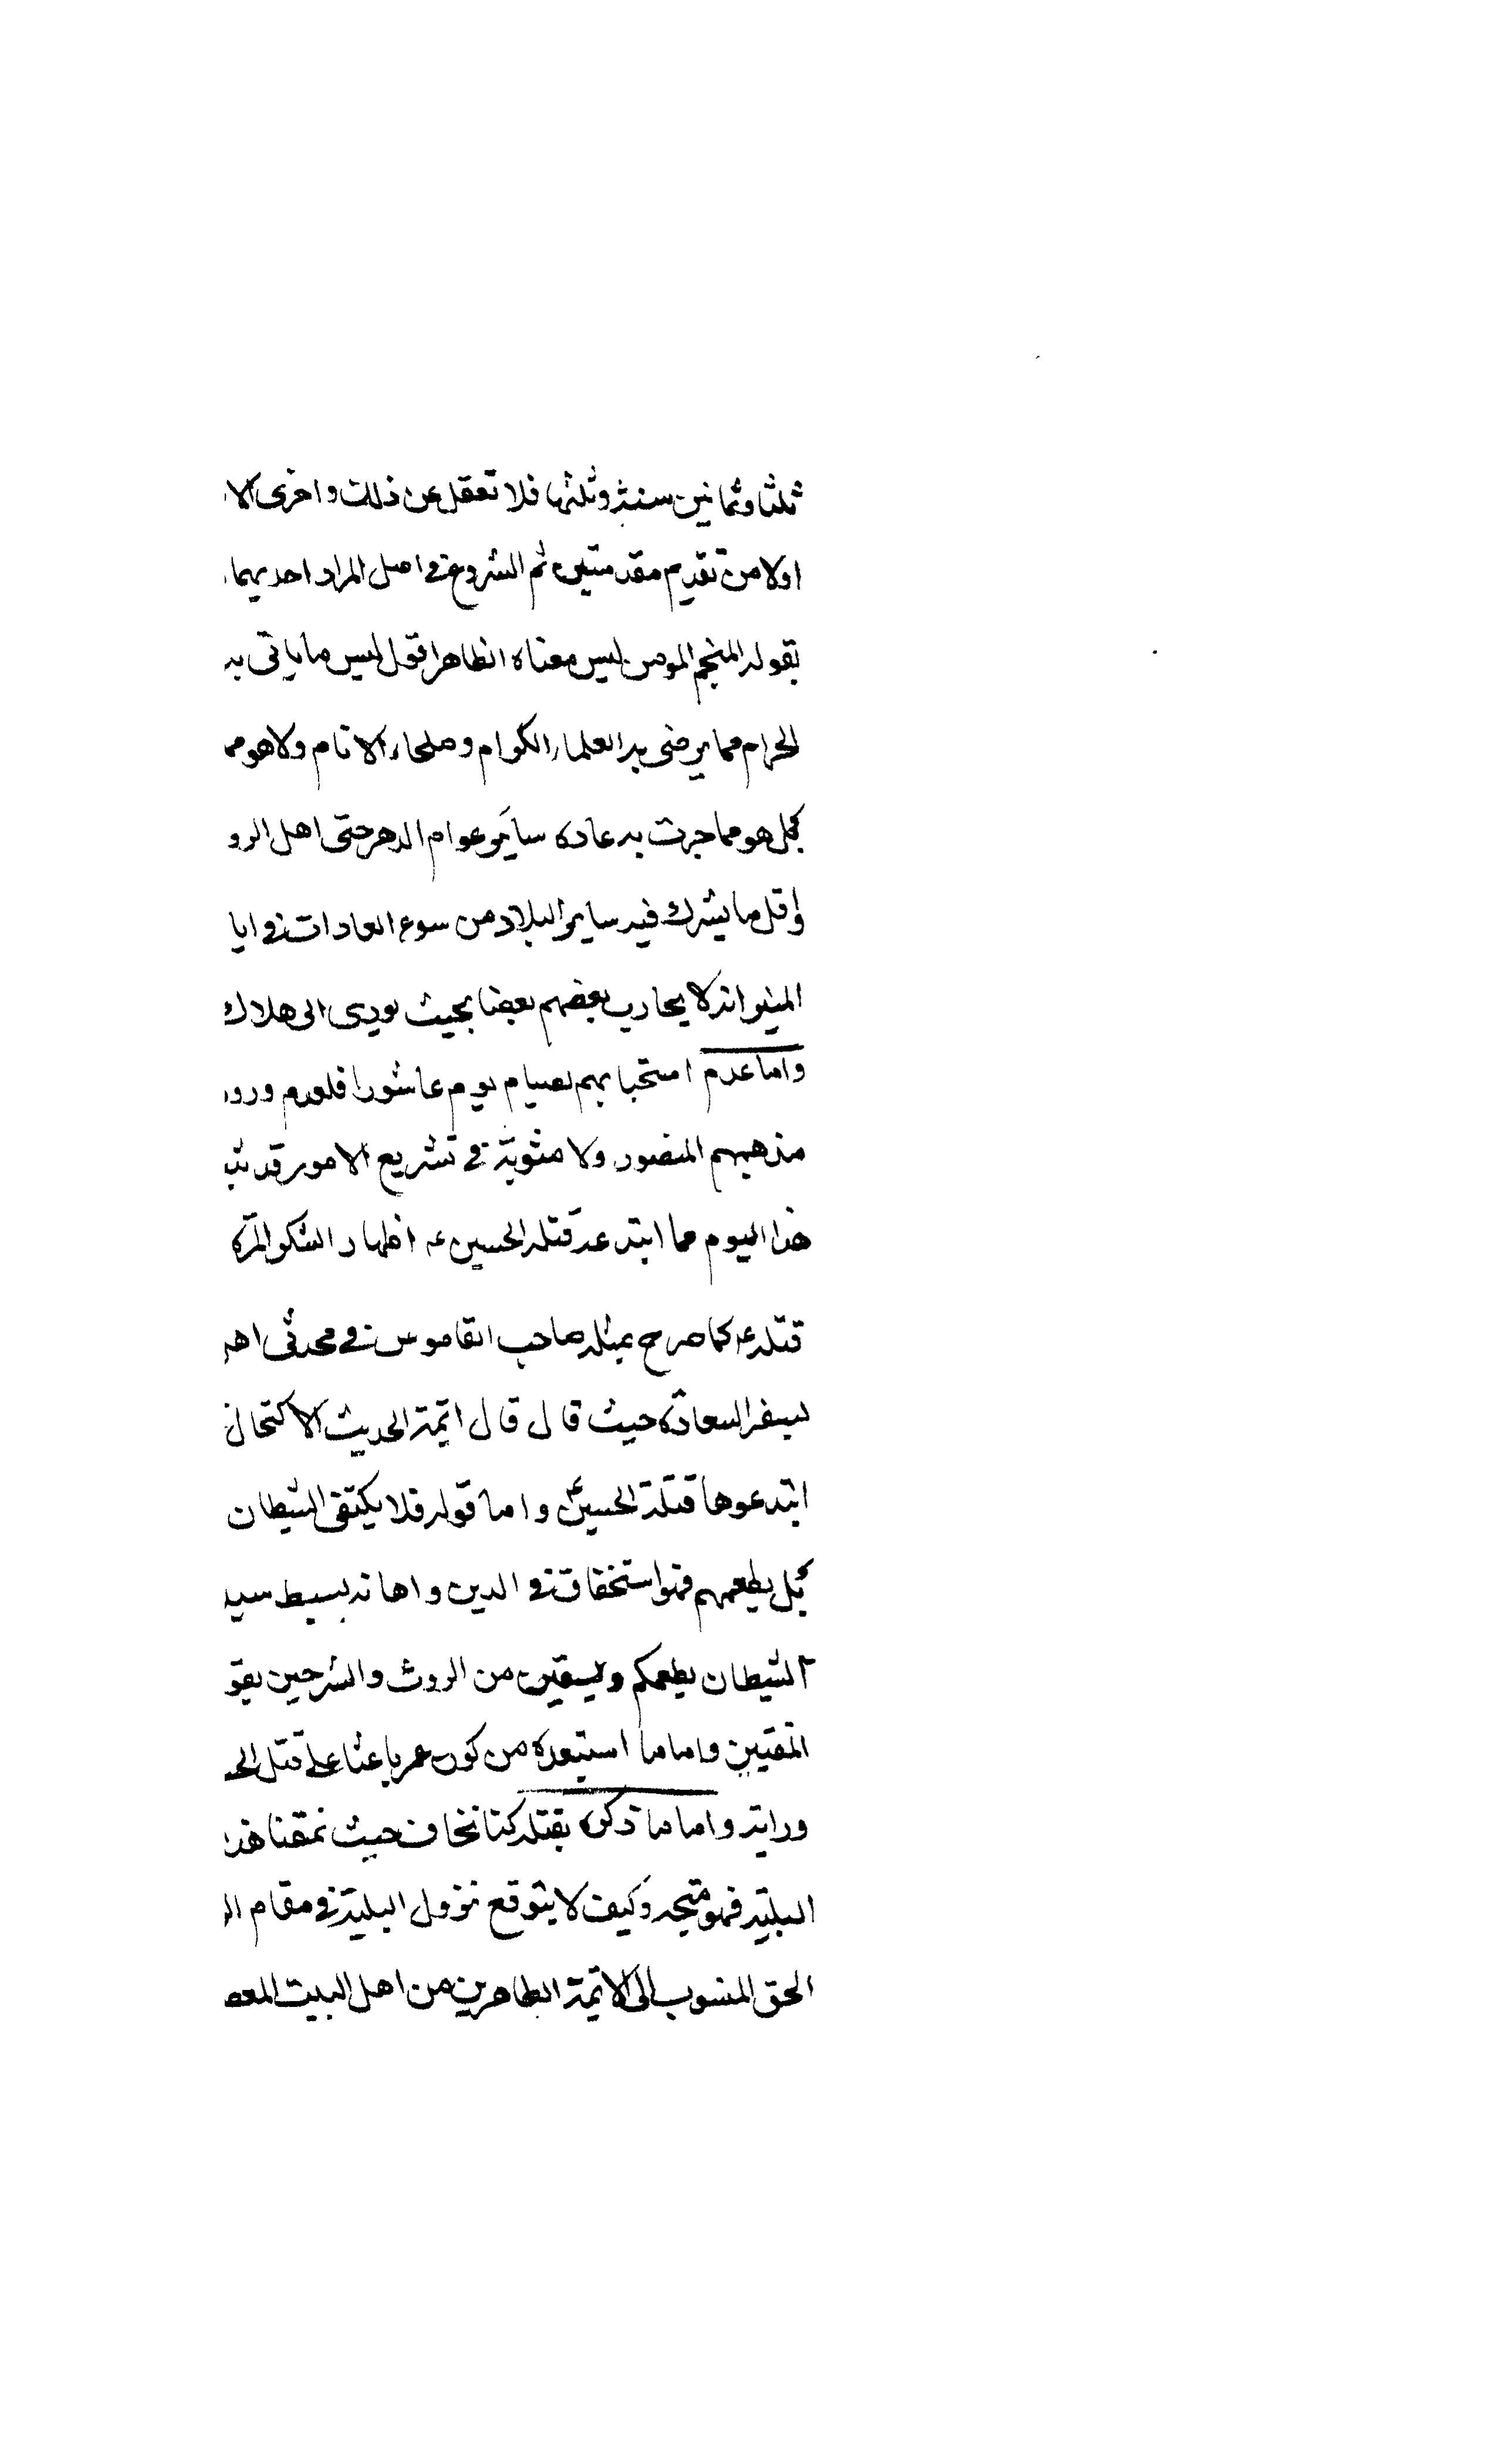 ثلثا وثمانين سنة وثلثها فلا تغفل عن ذلك واخرى الا
اولا من تقديم مقدمتين ثم الشروع في اصل المراد احديهما
بقوله المنجم المومن ليس معناه الظاهر اقول ليس ما ياتى به
الحرام مما يرضى به العلماء الكرام وصلحاء الانام ولا هو مم
بل هو مما جرت به عادة ساير عوام الدهر حتى اهل الرو
واقل ما يشرك فيه ساير البلاد من سوء العادات في ايا
انه لا يحارب بعضهم بعضا بحيث يودى الى هلاك
واما عدم استحبابهم لصيام يوم عاشورا فلعدم ورو
مذهبهم المنصور ولا مثوبة في تشريع الامور قد ثب
هذا اليوم مما ابتدعه قتلة الحسين عه اظهار الشكر
قتله عه كما صرح بمثله صاحب القاموس في محدثى اهل
بسفر السعادة حيث قال قال ائمة الحديث الاكتحال
ابتدعوها قتلة الحسين ع واما قوله فلا يكتفى الشيطان
بل يطعمهم فهو استخفاف في الدين واهانة بسبط سيد
الشيطان يطعمكم ويسقين من الروث والسرحين بقو
المفتين واما ما استبعده من كون عمر باعثا على قتل الح
ورايته واما ما ذكره بقتله كنا نخاف حيث نمقنا هذ
البلية فهو متجه وكيف لا يتوقع نزول البلية في مقام ال
الحق المنسوب الى الائمة الطاهرين من اهل البيت المعص